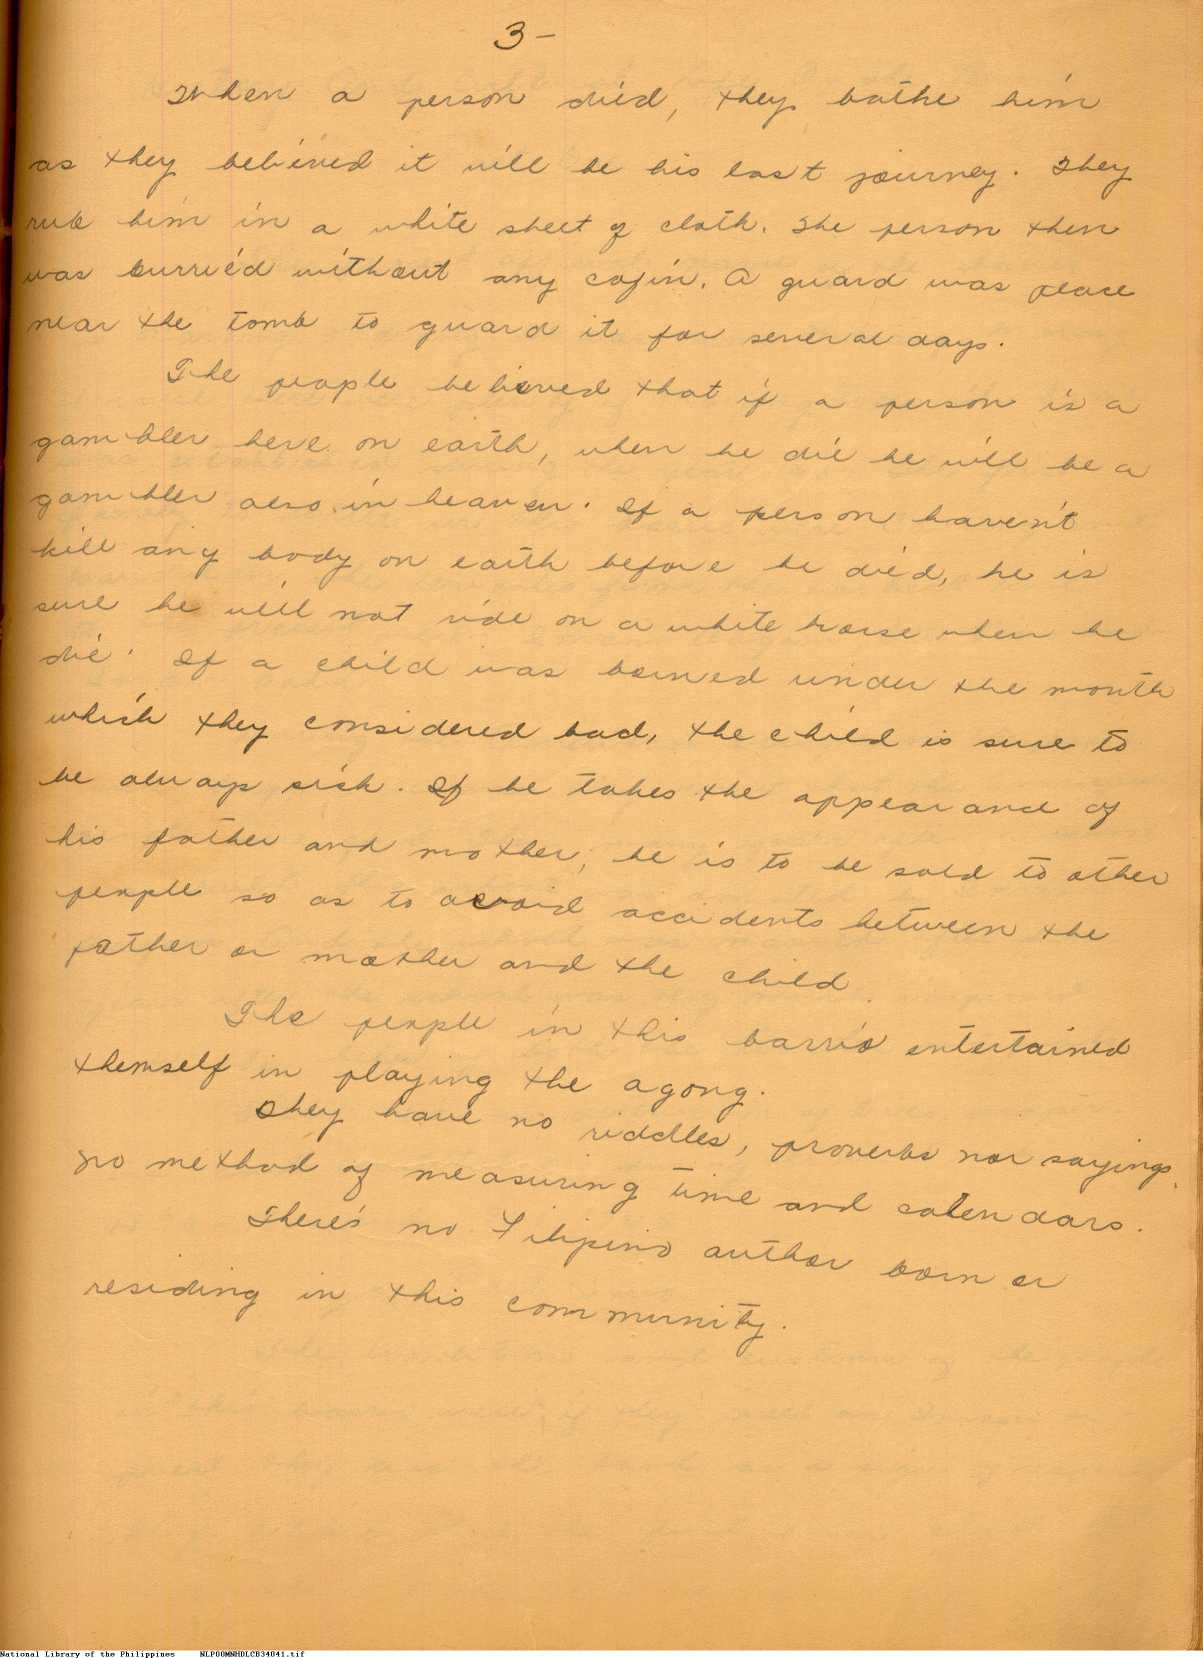 3-
When a person died, they bathe him
as they believed it will be his last journey. They
rub him in a white sheet of cloth. The person then
was burried without any cofin. A guard was place
near the tomb to guard it for several days.
The people believed that if a person is a
gambler here on earth, when he die he will be a
gambler also in heaven. If a person haven't
kill any body on earth before he died, he is
sure he will not ride on a white horse when he
die. If a child was borned under the month
which they considered bad, the child is sure to
be always sick. If he takes the appearance of
his father and mother, he is to be sold to other
people so as to avoid accidents between the
father or mother and the child
The people in this barrio entertained
themself in playing the agong.
They have no riddles, proverbs nor sayings,
no method of measuring time and calendars.
There's no Filipino author born or
residing in this community.
National Library of the Philippines NLP00MNHDLCB34041.tif